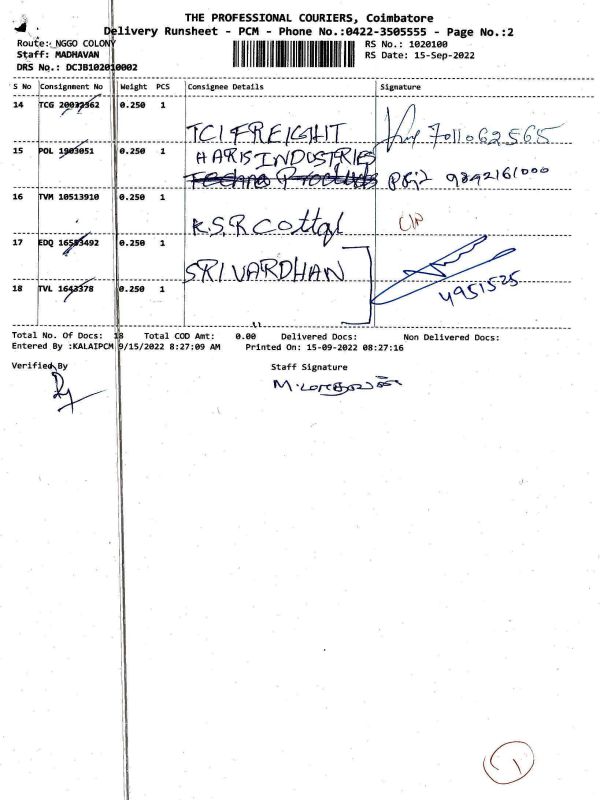 THE PROFESSIONAL COURIERS, Coimbatore
Delivery Runsheet - PCM - Phone No.:0422-3505555 - Page No.:2
Route: NGGO COLONY RS No.: 1020100
Staff: MADHAVAN RS Date: 15-Sep-2022
DRS No.: DCJB102010002
S No Consignment No Weight PCS Consignee Details Signature
14 TCG 20032362 0.250 1
TCI FREIGHT 7011062565
15 POL 1903051 0.250 1 HARIS INDUSTRIES
9892161000
16 TVM 10513910 0.250 1
K.S.R Cottql
17 EDQ 16553492 0.250 1
SRI VARDHAN
18 TVL 1643378 0.250 1 4951525
Total No. Of Docs: 18 Total COD Amt: 0.00 Delivered Docs: Non Delivered Docs:
Entered By :KALAIPCM 9/15/2022 8:27:09 AM Printed On: 15-09-2022 08:27:16
Verified By Staff Signature